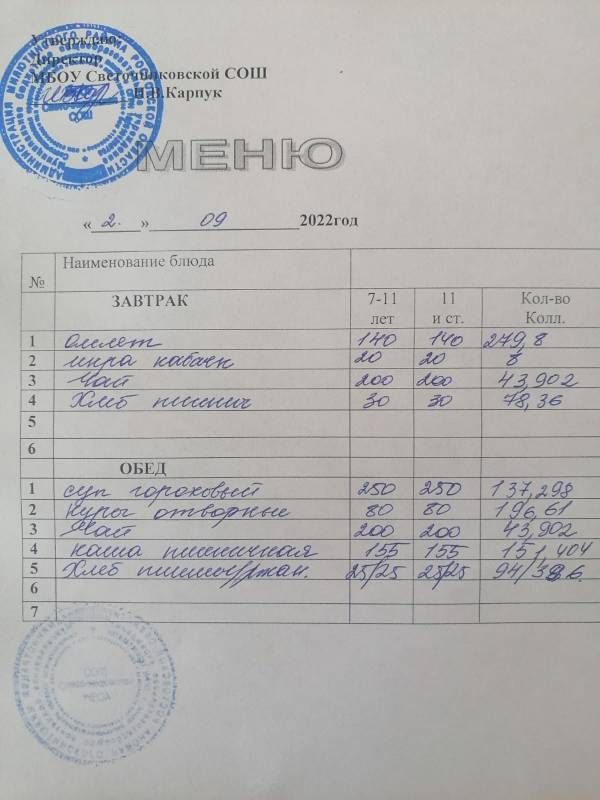 Утверждаю:
Директор
МБОУ Светочниковской СОШ
Н.В.Карпук
МЕНЮ
« 2. » 09 2022год
№ Наименование блюда
ЗАВТРАК 7-11 лет 11 и ст. Кол-во Колл.
1 омлет 140 140 279,8
2 икра кабачк 20 20 8
3 Чай 200 200 43,902
4 Хлеб пшенич 30 30 78,36
5
6
ОБЕД
1 суп гороховый 250 250 137,298
2 куры отворные 80 80 196,61
3 Чай 200 200 43,902
4 каша пшеничная 155 155 151,404
5 Хлеб 25/25 25/25
6
7